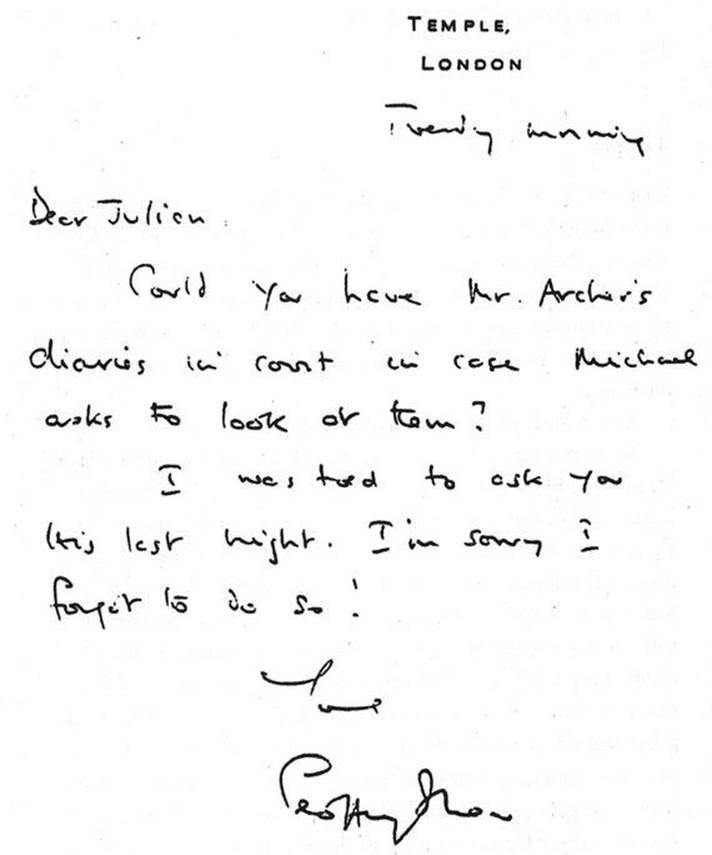 TEMPLE,
LONDON
Tuesday morning
Dear Julian.
Could you have Mr. Archer's
diaries in court in case Michael
asks to look at them?
I was to ask you
this last night. I'm sorry I
forgot to do so!
Geoffrey Shaw